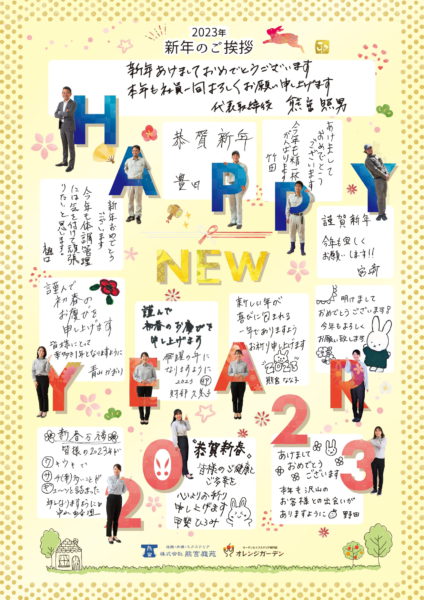 2023年
新年のご挨拶
新年あけましておめでとうございます
本年も社員一同よろしくお願い申し上げます
代表取締役 熊倉 照男
H
A
P
P
Y
恭賀新年
豊田
あけまして
おめでとう
ございます
今年も精一杯
がんばります
竹田
新年おめでとう
ございます
今年も体調管理
には気を付けて頑張
りたいと思います。
謹賀新年
今年も宜しく
お願いします!!
宮崎
NEW
謹んで
初春の
お慶びを
申し上げます
皆様にとって
青山かおり
謹んで
初春のお慶びを
申し上げます
笑顔の年に
なりますように
2023
新しい年が
喜びに包まれる
一年でありますよう
お祈り申し上げます
2023
明けまして
おめでとうございます!
今年もよろしく
お願い致します
Y
E
A
R
2
0
2
3
新春万福
皆様の2023年が
恭賀新春。
皆様のご健康と
ご多幸を
心よりお祈り
申し上げます
甲斐 ひろみ
あけまして
おめでとう
ございます
本年も沢山の
お客様との出会いが
ありますように
野田
オレンジガーデン